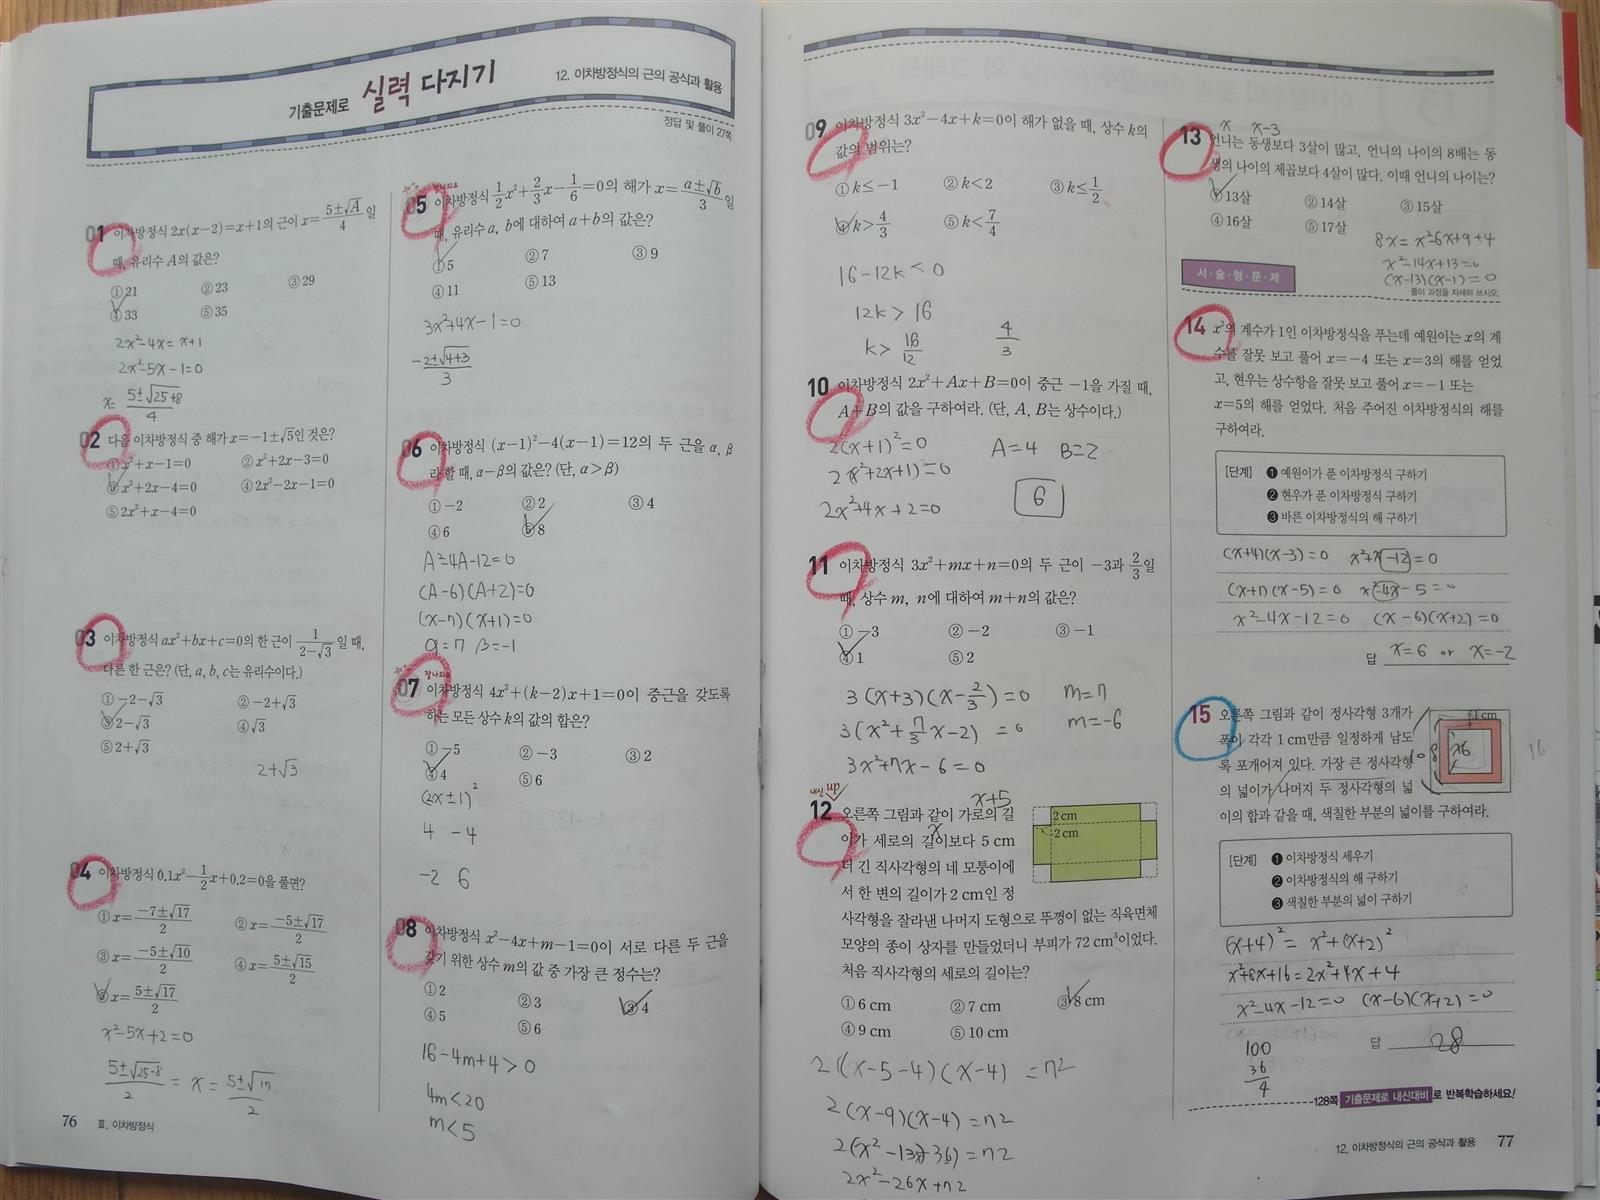 기출문제로 실력 다지기
12. 이차방정식의 근의 공식과 활용
정답 및 풀이 27쪽
01 이차방정식 2x(x-2)=x+1의 근이 x=(5±√A)/4일
때, 유리수 A의 값은?
①21 ②23 ③29
④33 ⑤35
2x²-4x=x+1
2x²-5x-1=0
x= (5±√(25+8))/4
02 다음 이차방정식 중 해가 x=-1±√5인 것은?
①x²+x-1=0 ②x²+2x-3=0
③x²+2x-4=0 ④2x²-2x-1=0
⑤2x²+x-4=0
03 이차방정식 ax²+bx+c=0의 한 근이 1/(2-√3)일 때,
다른 한 근은? (단, a, b, c는 유리수이다.)
①-2-√3 ②-2+√3
③2-√3 ④√3
⑤2+√3
2+√3
04 이차방정식 0.1x²-1/2x+0.2=0을 풀면?
①x=(-7±√17)/2 ②x=(-5±√17)/2
③x=(-5±√10)/2 ④x=(5±√15)/2
⑤x=(5±√17)/2
x²-5x+2=0
(5±√(25-8))/2 = x = (5±√17)/2
76 Ⅲ. 이차방정식
잘나와요
05 이차방정식 1/2x²+2/3x-1/6=0의 해가 x=(a±√b)/3일
때, 유리수 a, b에 대하여 a+b의 값은?
①5 ②7 ③9
④11 ⑤13
3x²+4x-1=0
(-2±√(4+3))/3
06 이차방정식 (x-1)²-4(x-1)=12의 두 근을 α, β
라 할 때, α-β의 값은? (단, α>β)
①-2 ②2 ③4
④6 ⑤8
A²-4A-12=0
(A-6)(A+2)=0
(x-7)(x+1)=0
α=7 β=-1
잘나와요
07 이차방정식 4x²+(k-2)x+1=0이 중근을 갖도록
하는 모든 상수 k의 값의 합은?
①-5 ②-3 ③2
④4 ⑤6
(2x±1)²
4 -4
-2 6
08 이차방정식 x²-4x+m-1=0이 서로 다른 두 근을
갖기 위한 상수 m의 값 중 가장 큰 정수는?
①2 ②3 ③4
④5 ⑤6
16-4m+4>0
4m<20
m<5
09 이차방정식 3x²-4x+k=0이 해가 없을 때, 상수 k의
값의 범위는?
①k≤-1 ②k<2 ③k≤1/2
④k>4/3 ⑤k<7/4
16-12k<0
12k>16
k>16/12 4/3
10 이차방정식 2x²+Ax+B=0이 중근 -1을 가질 때,
A+B의 값을 구하여라. (단, A, B는 상수이다.)
2(x+1)²=0 A=4 B=2
2(x²+2x+1)²=0
2x²+4x+2=0 6
11 이차방정식 3x²+mx+n=0의 두 근이 -3과 2/3일
때, 상수 m, n에 대하여 m+n의 값은?
①-3 ②-2 ③-1
④1 ⑤2
3(x+3)(x-2/3)=0 m=7
3(x²+7/3x-2)=0 m=-6
3x²+7x-6=0
내신 up
x+5
12 오른쪽 그림과 같이 가로의 길
x
이가 세로의 길이보다 5 cm
더 긴 직사각형의 네 모퉁이에
서 한 변의 길이가 2 cm인 정
사각형을 잘라낸 나머지 도형으로 뚜껑이 없는 직육면체
모양의 종이 상자를 만들었더니 부피가 72 cm³이었다.
처음 직사각형의 세로의 길이는?
2 cm
2 cm
①6 cm ②7 cm ③8 cm
④9 cm ⑤10 cm
2((x-5-4)(x-4) =72
2(x-9)(x-4)=72
2(x²-13x+36)=72
2x²-26x+72
x x-3
13 언니는 동생보다 3살이 많고, 언니의 나이의 8배는 동
생의 나이의 제곱보다 4살이 많다. 이때 언니의 나이는?
①13살 ②14살 ③15살
④16살 ⑤17살
8x=x²-6x+9+4
x²-14x+13=0
(x-13)(x-1)=0
서·술·형·문·제
풀이 과정을 자세히 쓰시오.
14 x²의 계수가 1인 이차방정식을 푸는데 예원이는 x의 계
수를 잘못 보고 풀어 x=-4 또는 x=3의 해를 얻었
고, 현우는 상수항을 잘못 보고 풀어 x=-1 또는
x=5의 해를 얻었다. 처음 주어진 이차방정식의 해를
구하여라.
[단계] ❶ 예원이가 푼 이차방정식 구하기
❷ 현우가 푼 이차방정식 구하기
❸ 바른 이차방정식의 해 구하기
(x+4)(x-3)=0 x²+x-12=0
(x+1)(x-5)=0 x²-4x-5=0
x²-4x-12=0 (x-6)(x+2)=0
답 x=6 or x=-2
15 오른쪽 그림과 같이 정사각형 3개가
폭이 각각 1 cm만큼 일정하게 남도
록 포개어져 있다. 가장 큰 정사각형
의 넓이가 나머지 두 정사각형의 넓
이의 합과 같을 때, 색칠한 부분의 넓이를 구하여라.
1 cm
10 8 x6 16
[단계] ❶ 이차방정식 세우기
❷ 이차방정식의 해 구하기
❸ 색칠한 부분의 넓이 구하기
(x+4)²= x²+(x+2)²
x²+8x+16=2x²+4x+4
x²-4x-12=0 (x-6)(x+2)=0
100
36
4
답 28
128쪽 기출문제로 내신대비 로 반복학습하세요!
12. 이차방정식의 근의 공식과 활용 77